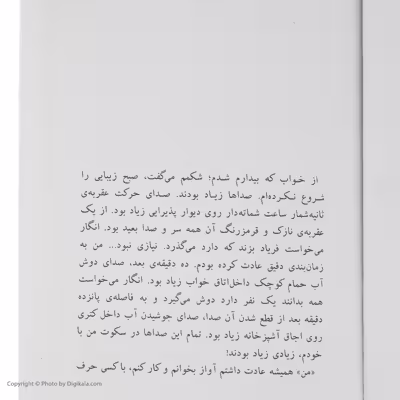 از خواب که بیدارم شدم؛ شکمم می‌گفت، صبح زیبایی را
شروع نکرده‌ام. صداها زیاد بودند. صدای حرکت عقربه‌ی
ثانیه‌شمار ساعت شماته‌دار روی دیوار پذیرایی زیاد بود. از یک
عقربه‌ی نازک و قرمزرنگ آن همه سر و صدا بعید بود. انگار
می‌خواست فریاد بزند که دارد می‌گذرد. نیازی نبود... من به
زمان‌بندی دقیق عادت کرده بودم. ده دقیقه‌ی بعد، صدای دوش
آب حمام کوچک داخل‌اتاق خواب زیاد بود. انگار می‌خواست
همه بدانند یک نفر دارد دوش می‌گیرد و به فاصله‌ی پانزده
دقیقه بعد از قطع شدن آن صدا، صدای جوشیدن آب داخل کتری
روی اجاق آشپزخانه زیاد بود. تمام این صداها در سکوت من با
خودم، زیادی زیاد بودند!
«من» همیشه عادت داشتم آواز بخوانم و کار کنم، با کسی حرف
Copyright © Photo by Digikala.com